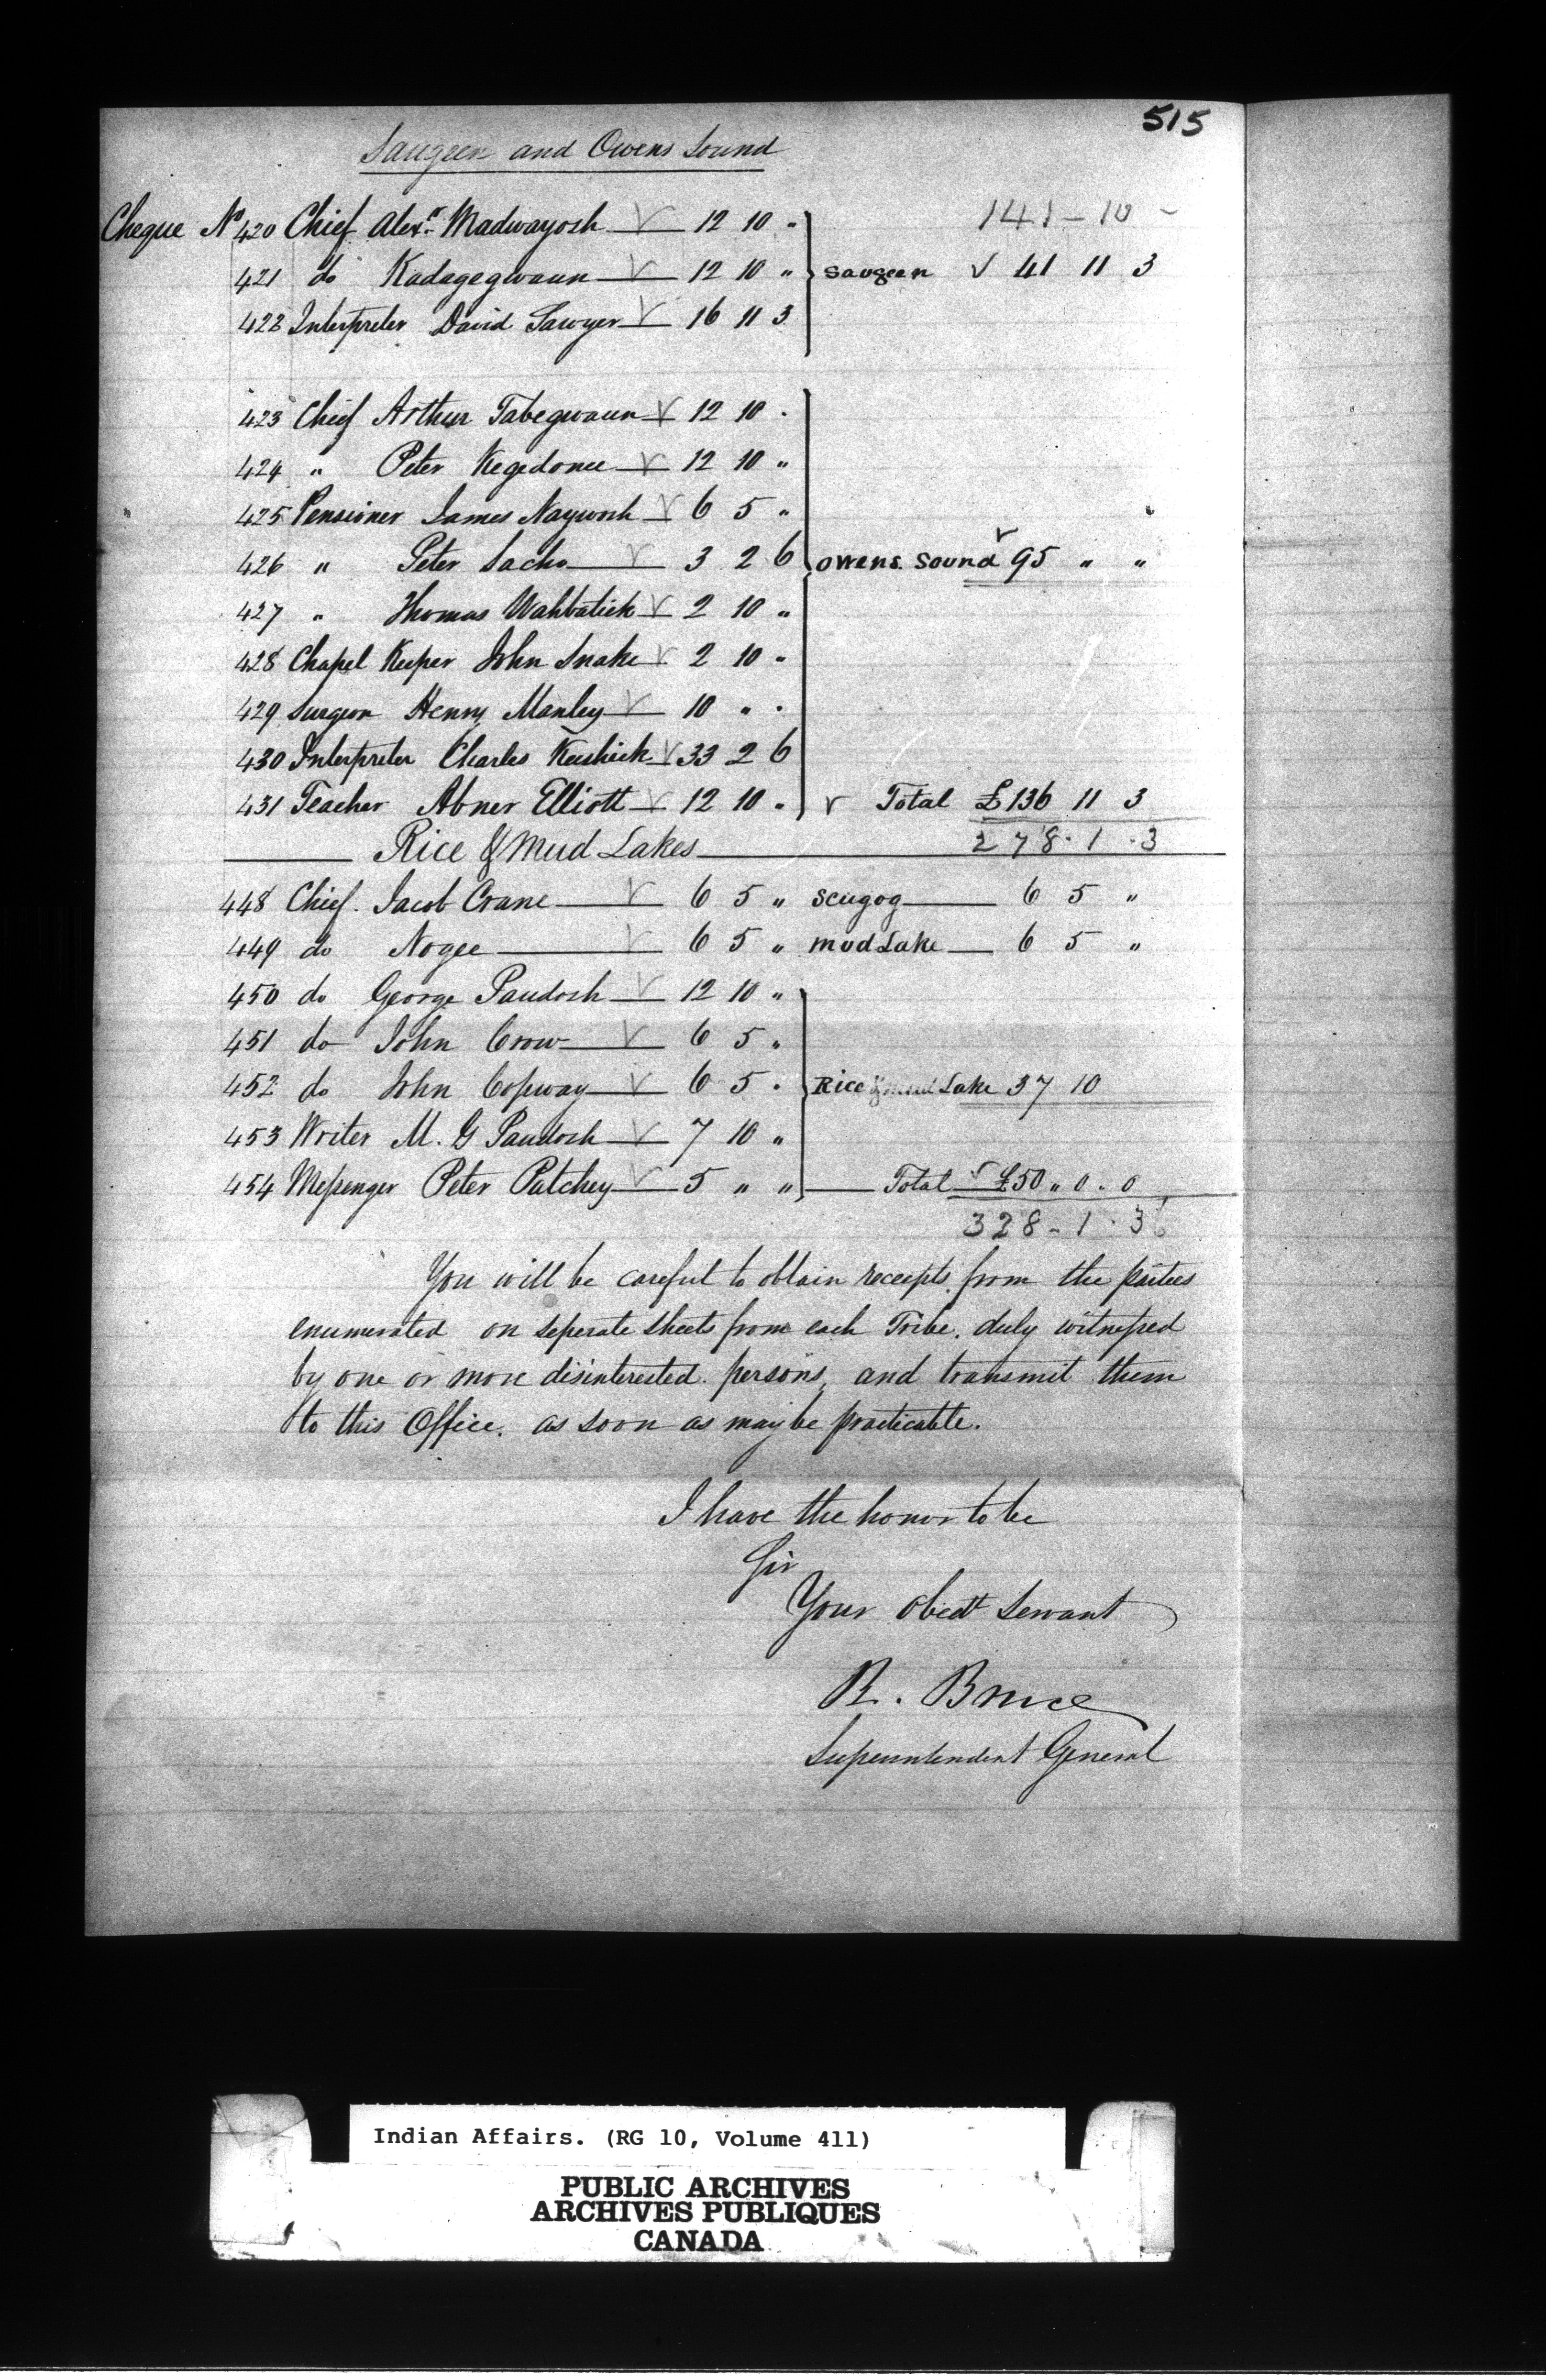 515
Saugeen and Owens Sound
141 - 10 -
Cheque No 420 Chief Alexr. Madwayosh ✓ 12 10 "
421 do Kadagegwaun ✓ 12 10 " Saugeen ✓ 41 11 3
422 Interpreter David Sawyer ✓ 16 11 3
423 Chief Arthur Tabegwaun ✓ 12 10 "
424 " Peter Kegedonce ✓ 12 10 "
425 Pensioner James Naywosh ✓ 6 5 "
426 " Peter Sacho ✓ 3 2 6 Owens Sound ✓ 95 " "
427 " Thomas Wahbatick ✓ 2 10 "
428 Chapel Keeper John Snake ✓ 2 10 "
429 Surgeon Henry Manley ✓ 10 " "
430 Interpreter Charles Keeshick ✓ 33 2 6
431 Teacher Abner Elliott ✓ 12 10 " ✓ Total £136 11 3
278 . 1 . 3
Rice & Mud Lakes
448 Chief Jacob Crane ✓ 6 5 " Scugog 6 5 "
449 do Nogee ✓ 6 5 " Mud Lake 6 5 "
450 do George Paudosh ✓ 12 10 "
451 do John Crow ✓ 6 5 "
452 do John Copway ✓ 6 5 " Rice & Mud Lake 37 10
453 Writer M. G Paudosh ✓ 7 10 "
454 Messenger Peter Patchey ✓ 5 " " Total ✓ £50 " 0 " 0
328 - 1 . 3
You will be careful to obtain receipts from the parties
enumerated on seperate sheets from each Tribe. duly witnessed
by one or more disinterested persons, and transmit them
to this Office. as soon as may be practicable.
I have the honor to be
Sir
Your obedt Servant
R. Bruce
Superintendent General
Indian Affairs. (RG 10, Volume 411)
PUBLIC ARCHIVES
ARCHIVES PUBLIQUES
CANADA